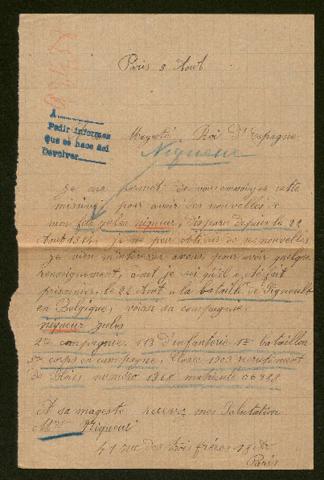 Paris 8 Aout
A
Pedir informes
que se hace así
Devolver
Magesté Roi D'Espagne
Niqueux
Je me permet de vous cette
missive pour avoir des nouvelles de
mon fils jules niqueux, disparu depuis le 22
Aout 1914. je ne peu obtenir de nouvelles
je viens avous pour avoir quelque
renseignement, avait je sai qu'il a été fait
prisonnier, le 22 Aout a la bataille de
en Belgique, voici sa compagnie,
niqueux jules
2me compagnie 113 D'infanterie 1r bataillon
5me corps en campagne, classe 1903 recrutement
de numero 1368 matricule
A sa magesté recevez mes salutation
Mme Niqueux
41 rue des trois frères 18me
Paris